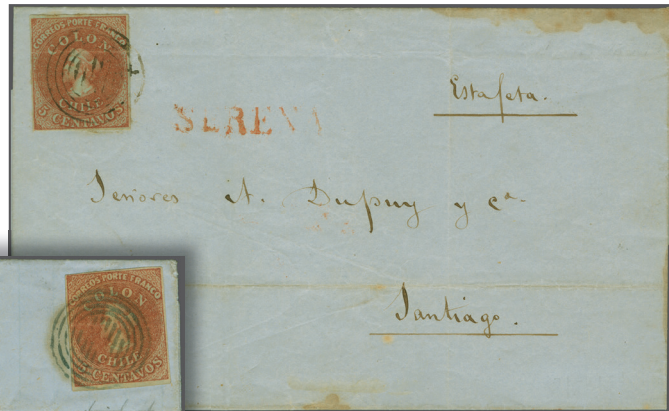 CORREOS PORTE FRANCO
COLON
CHILE
5 CENTAVOS
Estafeta.
SERENA
Señores A. Dupuy y Ca.
Santiago.
CORREOS PORTE FRANCO
COLON
CHILE
CENTAVOS